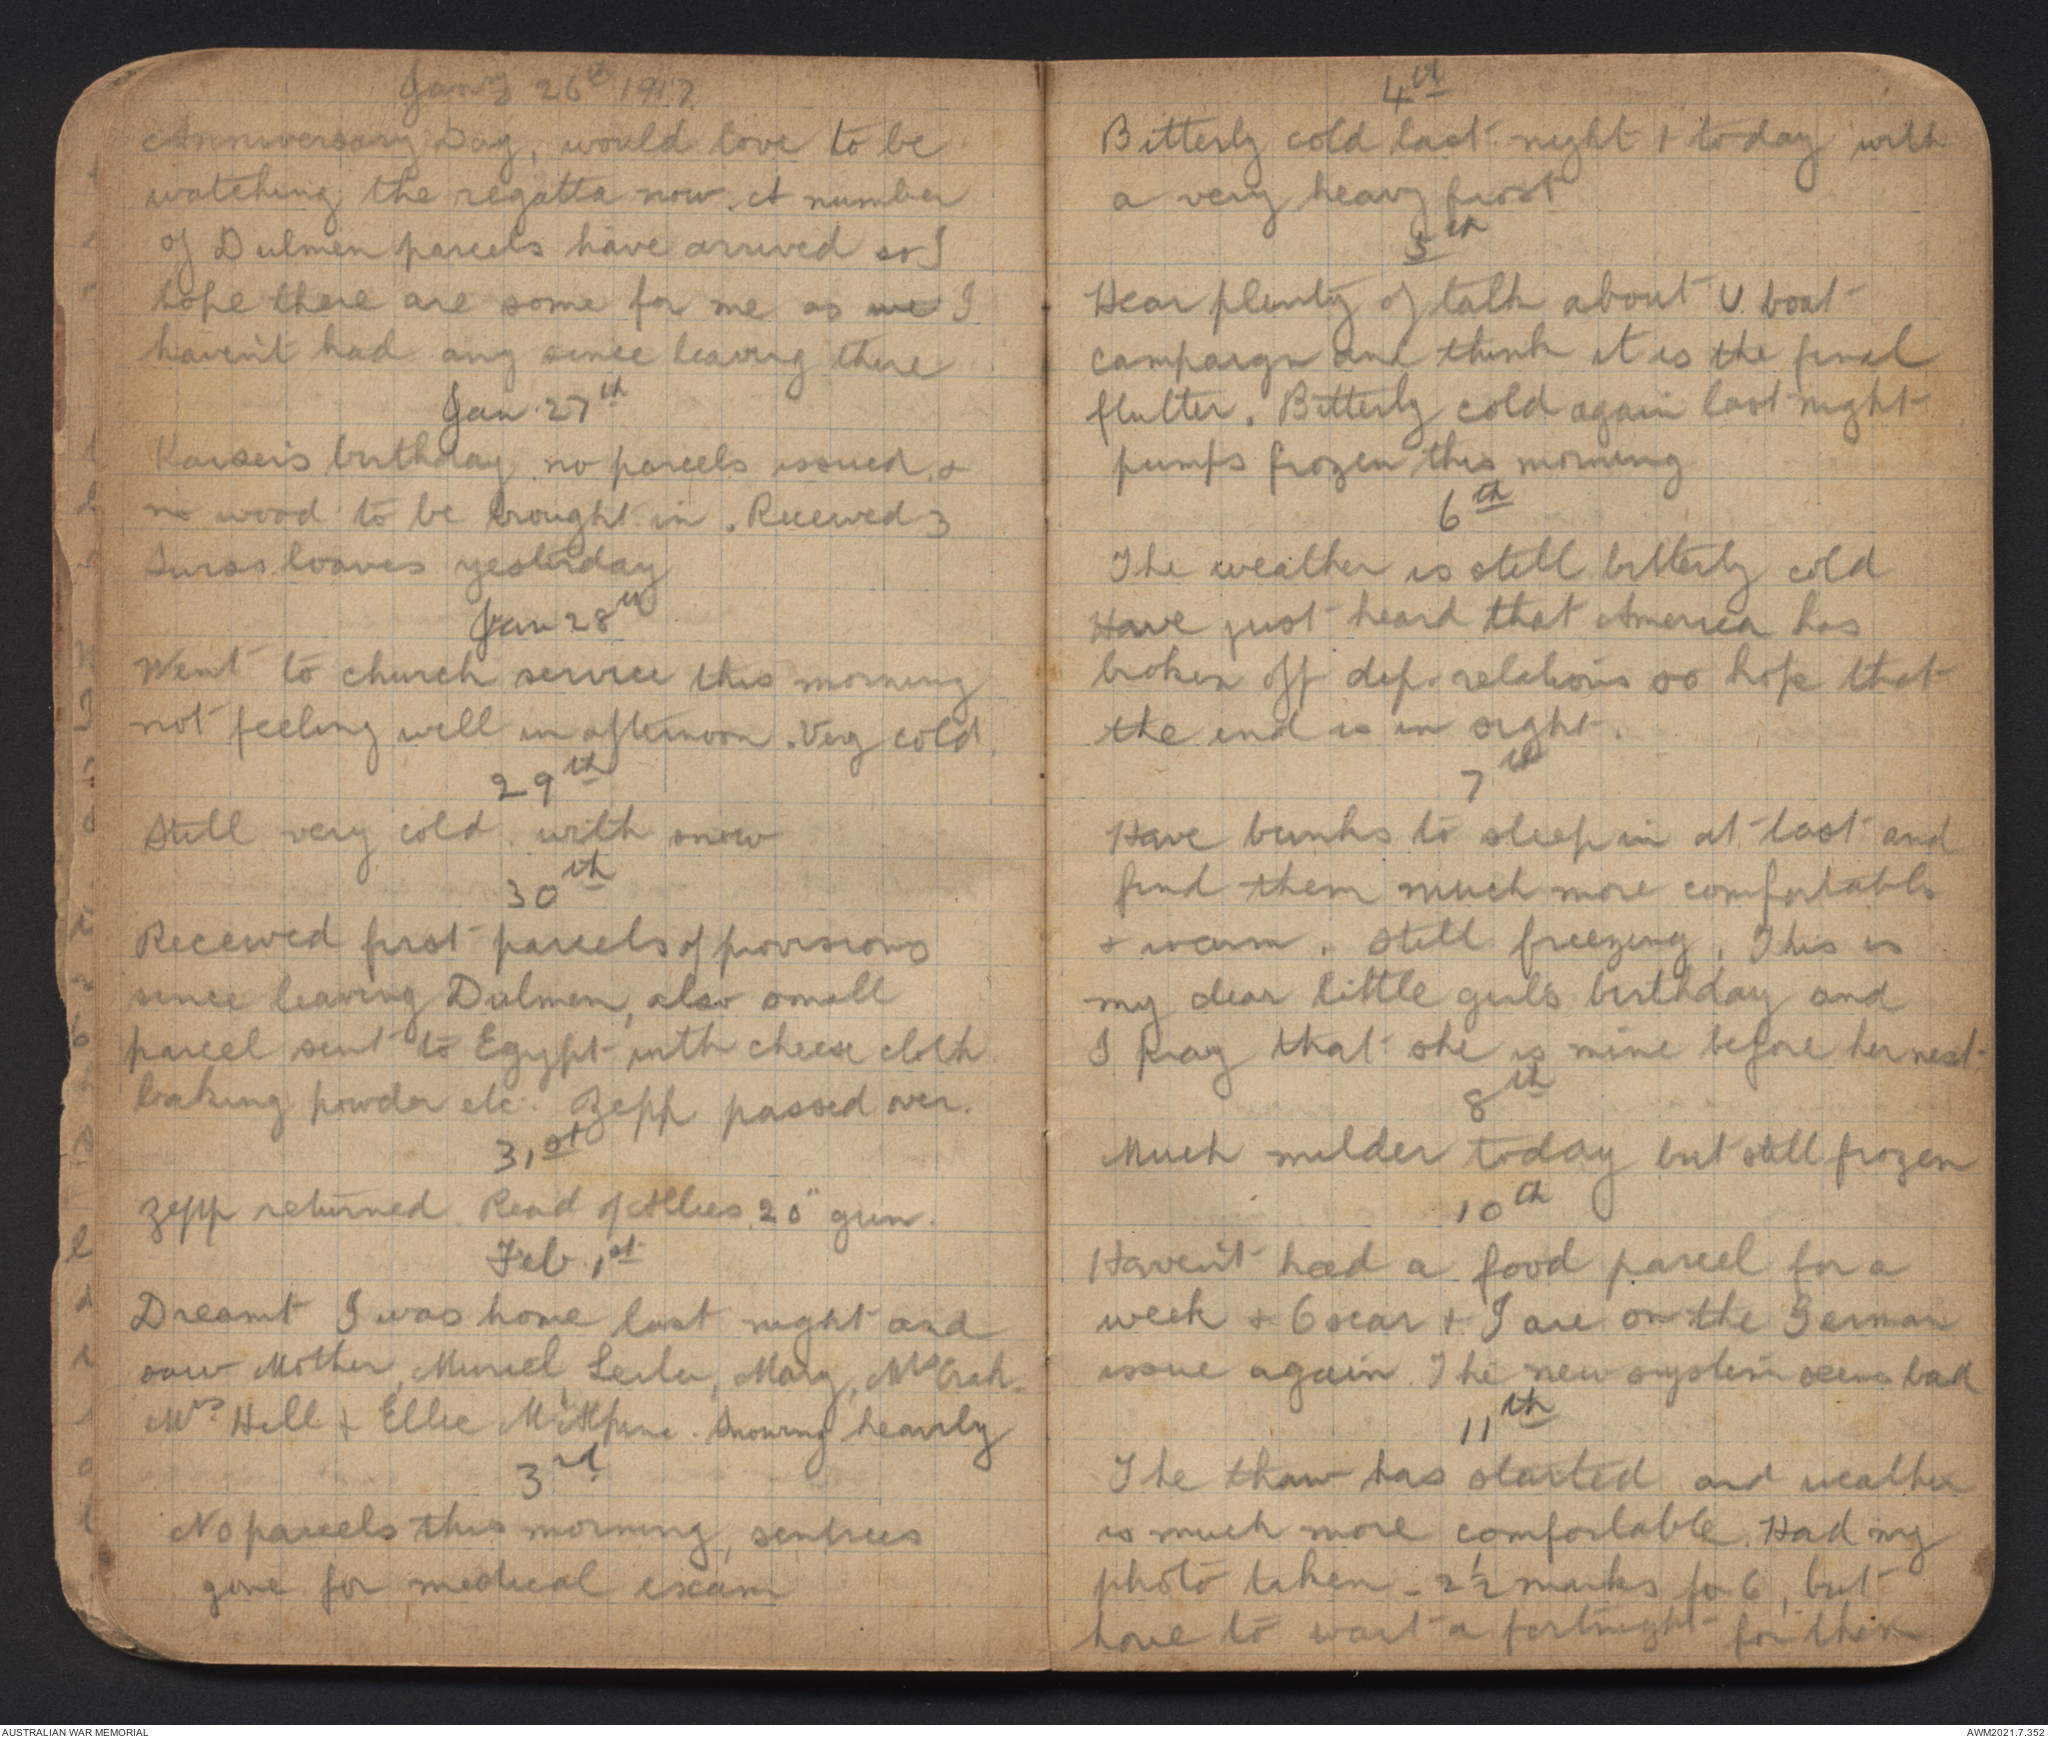 Jany 26th 1917
Anniversary Day, would love to be
watching the regatta now. A number
of Dulmen parcels have arrived so I
hope there are some for me as we I
haven't had any since leaving there
Jan 27th
Kaiser's birthday no parcels issued &
no wood to be brought in. Received 3
Swiss loaves yesterday
Jan 28th
Went to church service this morning
not feeling well in afternoon. Very cold.
29th
Still very cold with snow
30th
Received first parcels of provisions
since leaving Dulmen, also small
parcel sent to Egypt with cheese cloth
baking powder etc. Zepp passed over.
31st
Zepp returned. Read of Allies 20" gun.
Feb. 1st
Dreamt I was home last night and
saw Mother, Muriel, Leila, Mary,
Mrs Hill & Ellie Snowing heavily
3rd
No parcels this morning, sentries
gone for medical exam
4th
Bitterly cold last night & today with
a very heavy frost
5th
Hear plenty of talk about U. boat
campaign and think it is the final
flutter. Bitterly cold again last night
pumps frozen this morning
6th
The weather is still bitterly cold
Have just heard that America has
broken off dip. relations so hope that
the end is in sight.
7th
Have bunks to sleep in at last and
find them much more comfortable
& warm. Still freezing. This is
my dear little girl's birthday and
I pray that she is mine before her next.
8th
Much milder today but still frozen
10th
Haven't had a food parcel for a
week & Oscar & I are on the German
issue again. The new system seems bad
11th
The thaw has started and weather
is much more comfortable. Had my
photo taken - 2½ marks for 6, but
have to wait a fortnight for them
AUSTRALIAN WAR MEMORIAL
AWM2021.7.352